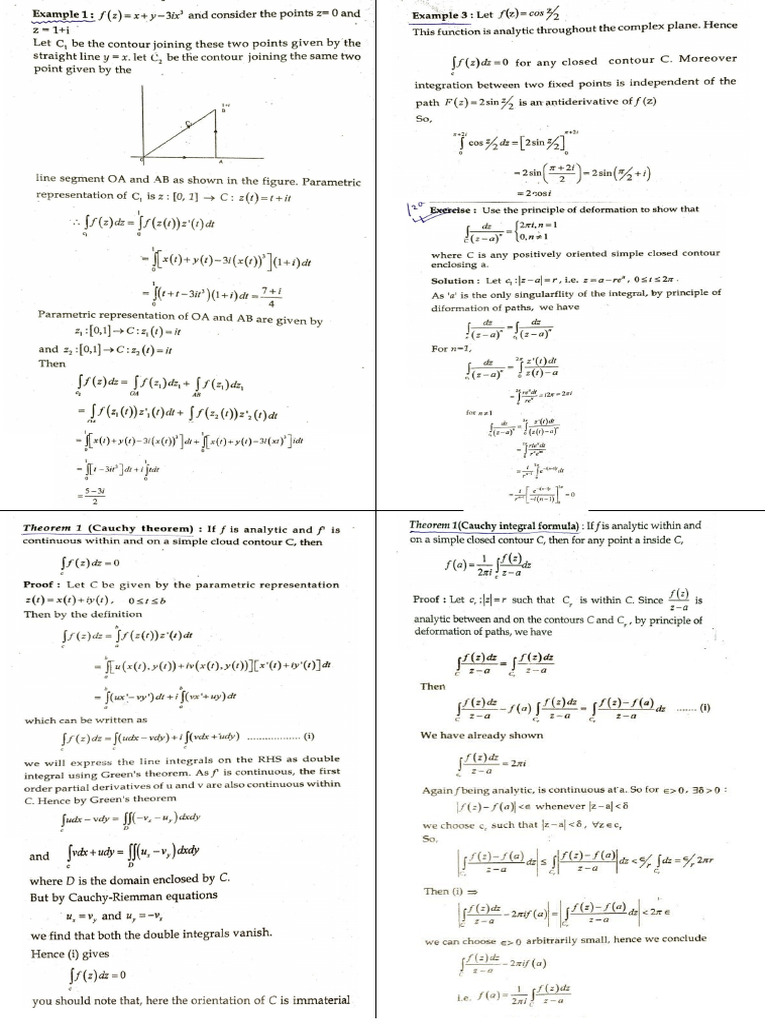 Example 1 : f(z) = x + y − 3ix³ and consider the points z= 0 and
z = 1+i
Let C₁ be the contour joining these two points given by the
straight line y = x. let C₂ be the contour joining the same two
point given by the
1+i
B
C₁
O
A
line segment OA and AB as shown in the figure. Parametric
representation of C₁ is z : [0, 1] → C : z(t) = t + it
∴ ∫_{c₁} f(z)dz = ∫₀¹ f(z(t))z'(t)dt
= ∫₀¹ [x(t) + y(t) − 3i(x(t))³](1+i)dt
= ∫₀¹ (t + t − 3it³)(1+i)dt = (7+i)/4
Parametric representation of OA and AB are given by
z₁ : [0,1] → C : z₁(t) = it
and z₂ : [0,1] → C : z₂(t) = it
Then
∫_{c₂} f(z)dz = ∫_{OA} f(z₁)dz₁ + ∫_{AB} f(z₁)dz₁
= ∫_{OA} f(z₁(t))z'₁(t)dt + ∫ f(z₂(t))z'₂(t)dt
= ∫₀¹ [x(t) + y(t) − 3i(x(t))³]dt + ∫₀¹ [x(t) + y(t) − 3i(xt)³]idt
= ∫₀¹ [t − 3it³]dt + i∫₀¹ tdt
= (5−3i)/2
Example 3 : Let f(z) = cos z/2
This function is analytic throughout the complex plane. Hence
∫_c f(z)dz = 0 for any closed contour C. Moreover
integration between two fixed points is independent of the
path F(z) = 2sin z/2 is an antiderivative of f(z)
So,
∫₀^{π+2i} cos z/2 dz = [2sin z/2]₀^{π+2i}
= 2sin((π+2i)/2) = 2sin(π/2 + i)
= 2cosi
Exercise : Use the principle of deformation to show that
∫_C dz/(z−a)ⁿ = {2πi, n = 1
0, n ≠ 1
where C is any positively oriented simple closed contour
enclosing a.
Solution : Let c₁ : |z−a| = r, i.e. z = a−reⁱᵗ, 0 ≤ t ≤ 2π.
As 'a' is the only singularflity of the integral, by principle of
diformation of paths, we have
∫_C dz/(z−a)ⁿ = ∫ dz/(z−a)ⁿ
For n=1,
∫ dz/(z−a)ⁿ = ∫₀^{2π} z'(t)dt/(z(t)−a)
= ∫₀^{2π} reⁱᵗdt/reⁱᵗ = i2π = 2πi
for n≠1
∫ dz/(z−a)ⁿ = ∫₀^{2π} z'(t)dt/(z(t)−a)ⁿ
Theorem 1 (Cauchy theorem) : If f is analytic and f' is
continuous within and on a simple cloud contour C, then
∫_c f(z)dz = 0
Proof : Let C be given by the parametric representation
z(t) = x(t) + iy(t), 0 ≤ t ≤ b
Then by the definition
∫_c f(z)dz = ∫ₐᵇ f(z(t))z'(t)dt
= ∫ₐᵇ [u(x(t), y(t)) + iv(x(t), y(t))][x'(t) + iy'(t)]dt
= ∫ₐᵇ (ux' − vy')dt + i∫ₐᵇ (vx' + uy)dt
which can be written as
∫_c f(z)dz = ∫_c (udx − vdy) + i∫_c (vdx + udy) .................. (i)
we will express the line integrals on the RHS as double
integral using Green's theorem. As f' is continuous, the first
order partial derivatives of u and v are also continuous within
C. Hence by Green's theorem
∫_c udx − vdy = ∬_D (−vₓ − u_y)dxdy
and ∫_c vdx + udy = ∬_D (uₓ − v_y)dxdy
where D is the domain enclosed by C.
But by Cauchy-Riemann equations
uₓ = v_y and u_y = −vₓ
we find that both the double integrals vanish.
Hence (i) gives
∫_c f(z)dz = 0
you should note that, here the orientation of C is immaterial
Theorem 1(Cauchy integral formula) : If f is analytic within and
on a simple closed contour C, then for any point a inside C,
f(a) = 1/2πi ∫_c f(z)/(z−a) dz
Proof : Let cᵣ : |z| = r such that Cᵣ is within C. Since f(z)/(z−a) is
analytic between and on the contours C and Cᵣ, by principle of
deformation of paths, we have
∫_C f(z)dz/(z−a) = ∫_{Cᵣ} f(z)dz/(z−a)
Then
∫_C f(z)dz/(z−a) − f(a)∫_{Cᵣ} f(z)dz/(z−a) = ∫_{Cᵣ} (f(z)−f(a))/(z−a) dz ....... (i)
We have already shown
∫ f(z)dz/(z−a) = 2πi
Again f being analytic, is continuous at a. So for ∈>0, ∃δ>0 :
|f(z)−f(a)|<∈ whenever |z−a|<δ
we choose cᵣ such that |z−a|<δ, ∀z∈cᵣ
So,
|∫_{Cᵣ} (f(z)−f(a))/(z−a) dz| ≤ ∫_{Cᵣ} |(f(z)−f(a))/(z−a)| dz < ∈/r ∫_{Cᵣ} dz = ∈/r 2πr
Then (i) ⇒
|∫_C f(z)dz/(z−a) − 2πif(a)| = |∫_{Cᵣ} (f(z)−f(a))/(z−a) dz| < 2π∈
we can choose ∈>0 arbitrarily small, hence we conclude
∫_C f(z)dz/(z−a) − 2πif(a)
i.e. f(a) = 1/2πi ∫_C f(z)dz/(z−a)